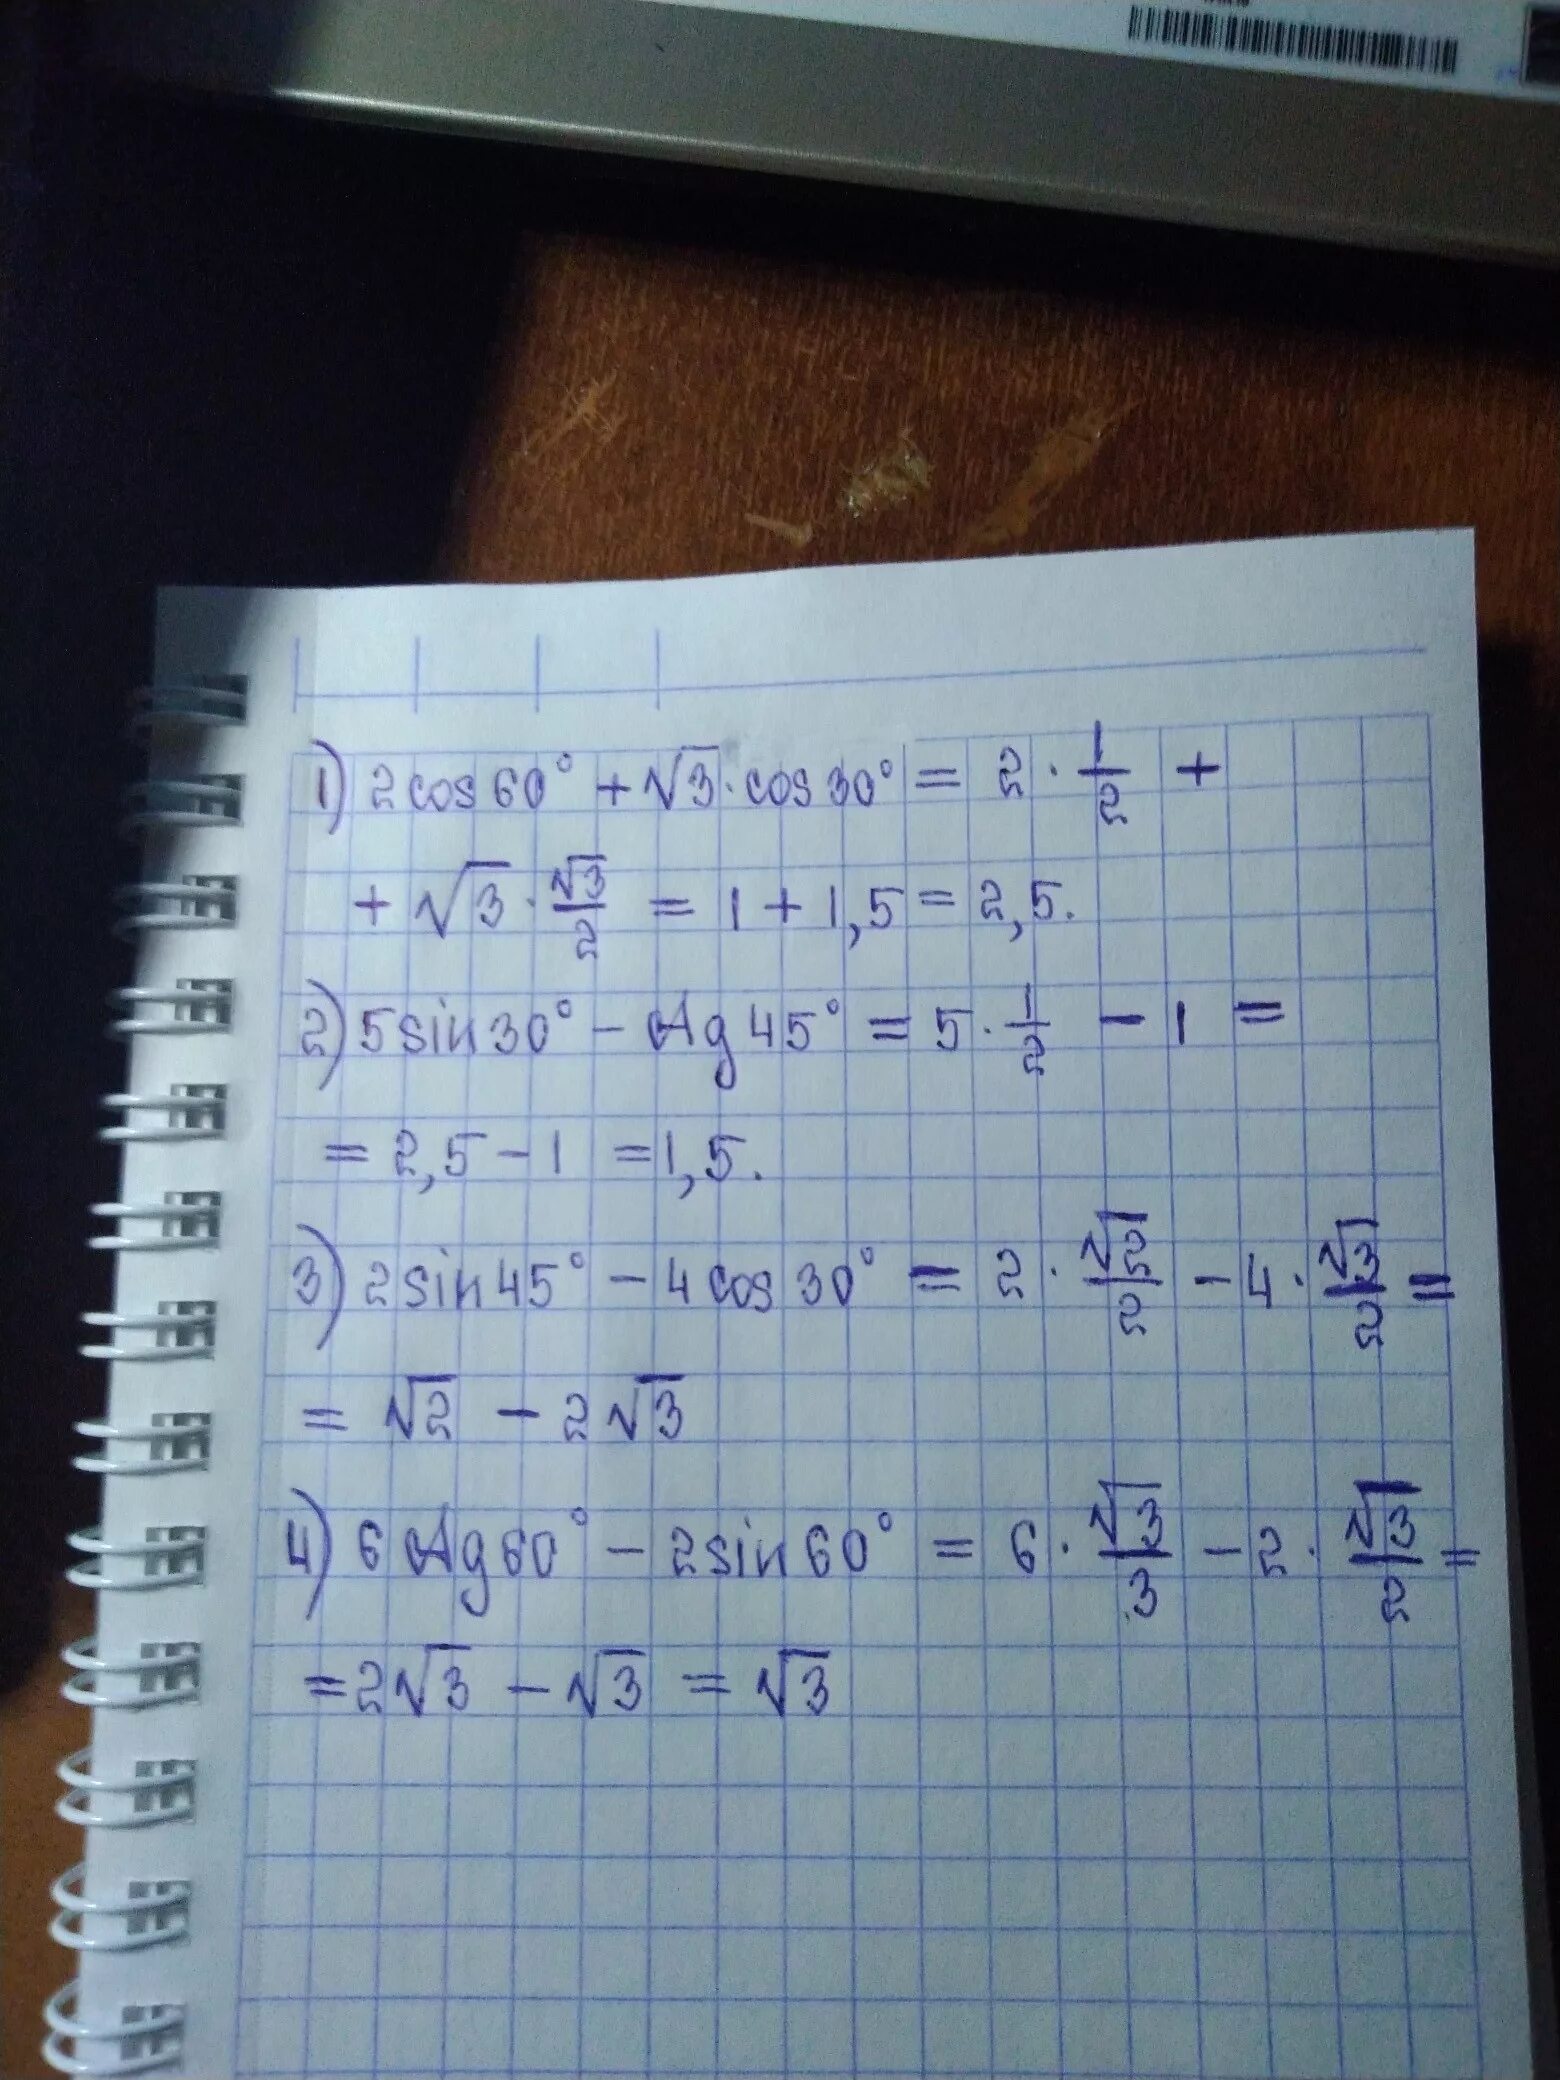 1) 2cos60° + √3·cos30° = 2 · 1/2 +
+ √3 · √3/2 = 1 + 1,5 = 2,5.
2) 5sin30° − ctg45° = 5 · 1/2 − 1 =
= 2,5 − 1 = 1,5.
3) 2sin45° − 4cos30° = 2 · √2/2 − 4 · √3/2 =
= √2 − 2√3
4) 6ctg60° − 2sin60° = 6 · √3/3 − 2 · √3/2 =
= 2√3 − √3 = √3